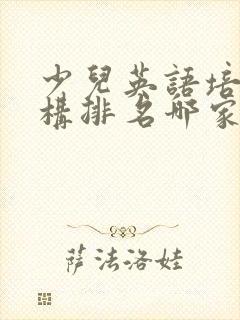 少兒英語培
構排名哪家
萨法洛娃